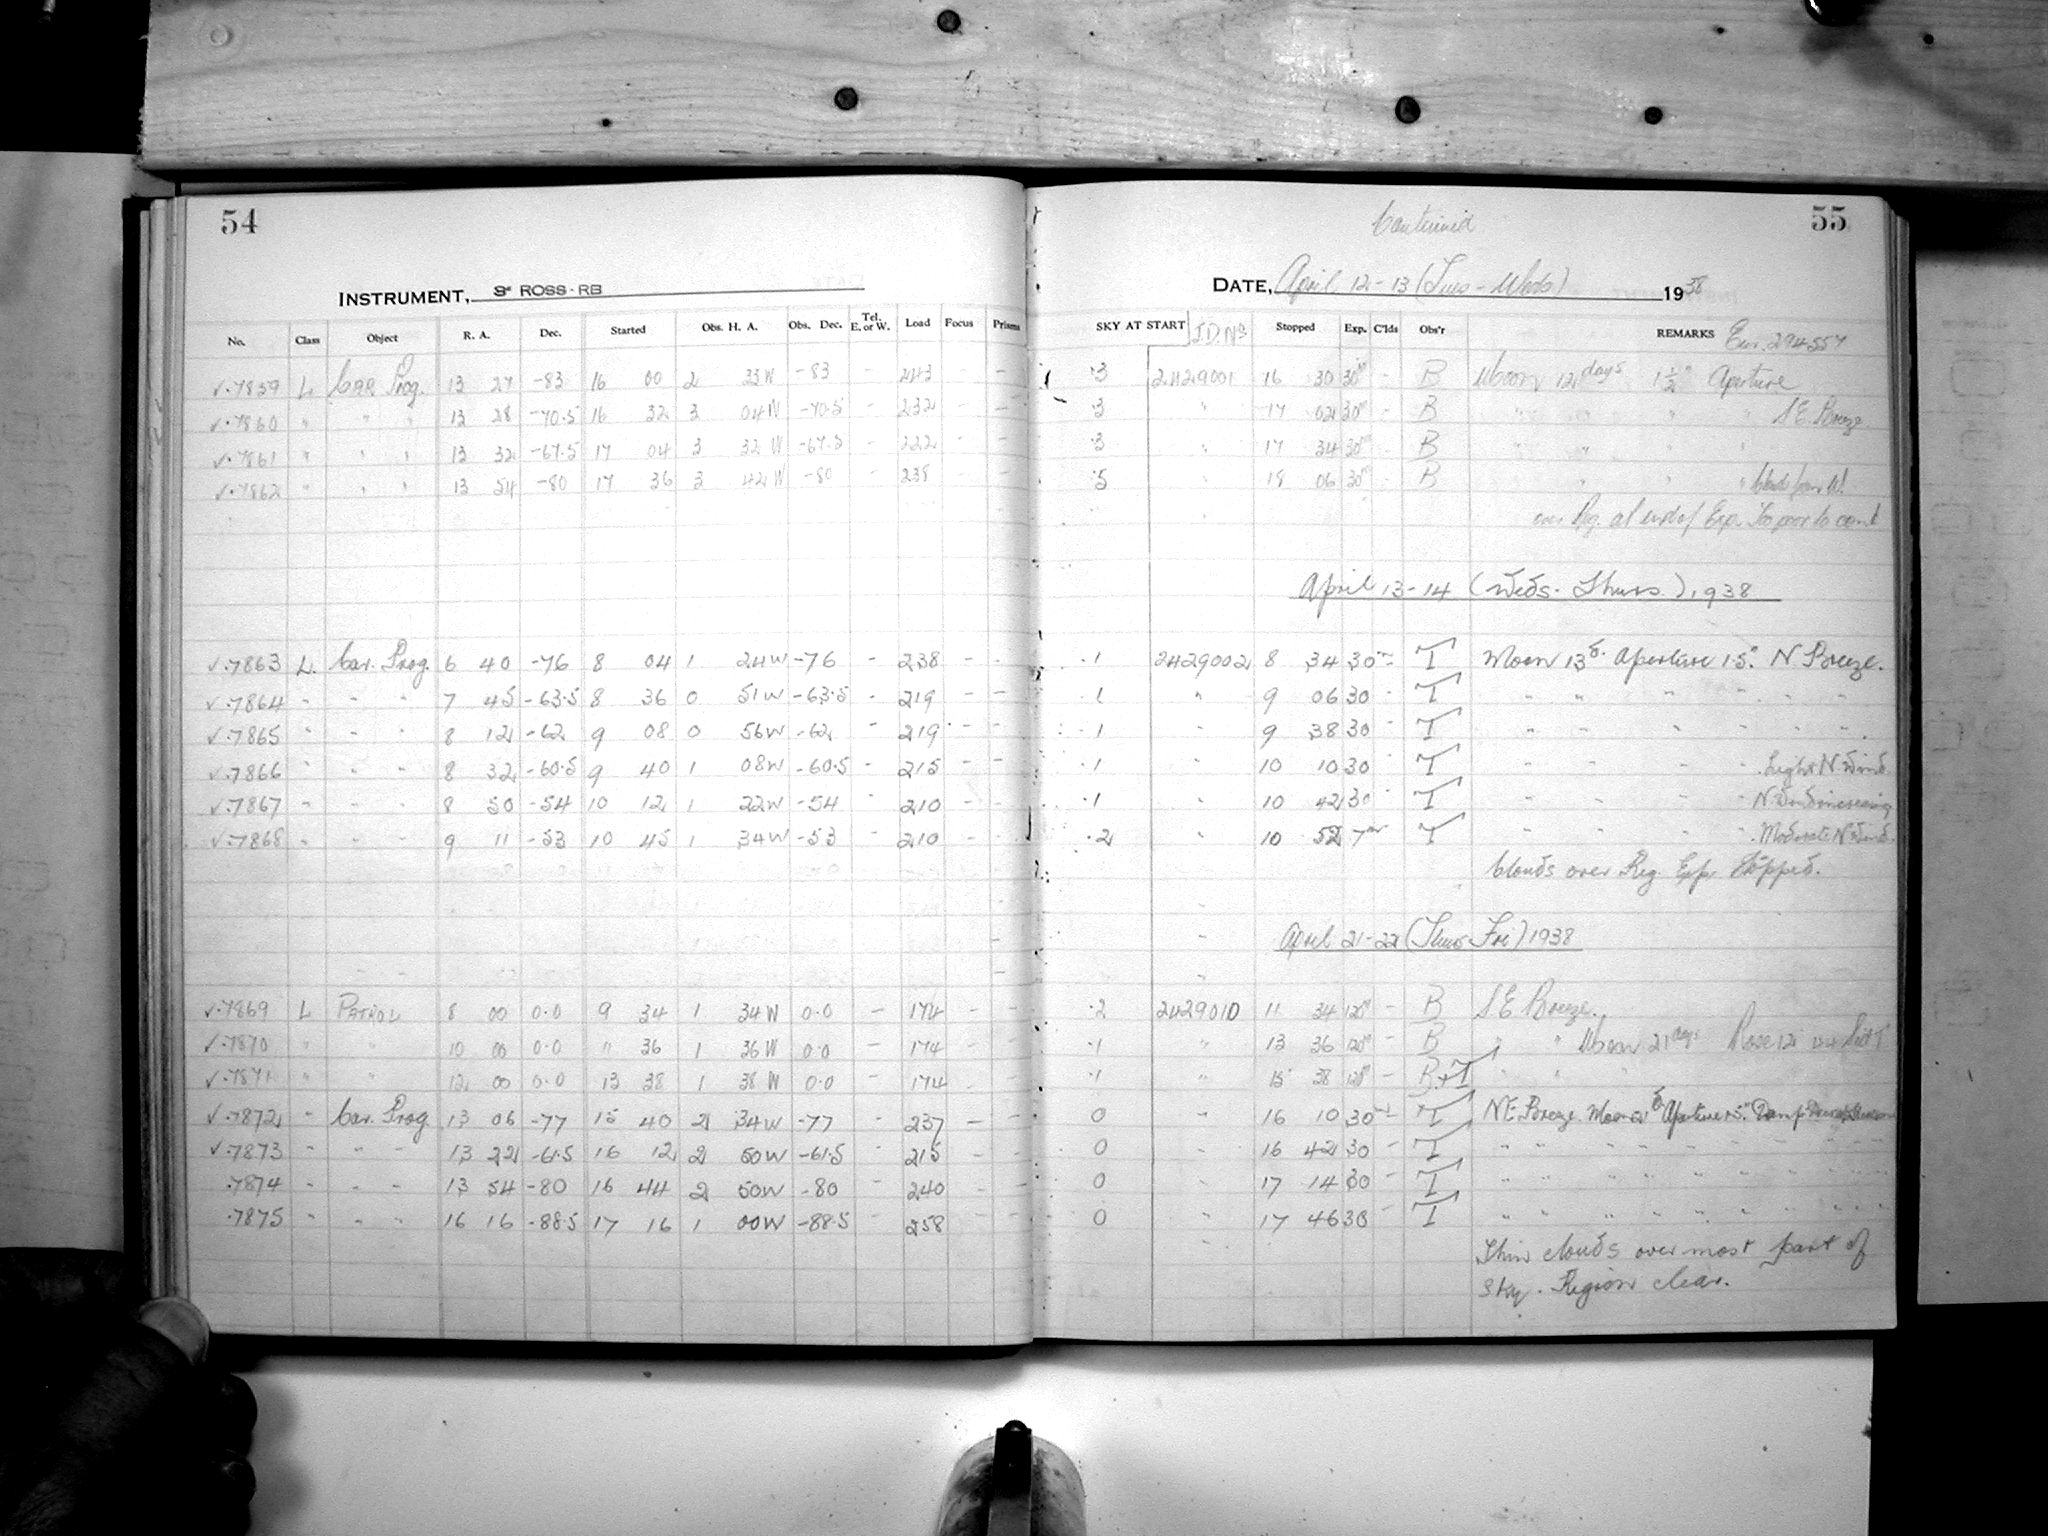 54
INSTRUMENT, 3" ROSS-RB
No. Class Object R. A. Dec. Started Obs. H. A. Obs. Dec. Tel. E. or W. Load Focus Prisms
✓.7859 L Car Prog. 13 27 -83 16 00 2 33W -83 - 243 - -
✓.7860 " " " 13 28 -70.5 16 32 3 04W -70.5 - 232 - -
✓.7861 " " " 13 32 -67.5 17 04 3 32W -67.5 - 222 - -
✓.7862 " " " 13 54 -80 17 36 3 42W -80 - 238 - -
✓.7863 L. Car. Prog. 6 40 -76 8 04 1 24W -76 - 238 - -
✓.7864 " " " 7 45 -63.5 8 36 0 51W -63.5 - 219 - -
✓.7865 " " " 8 12 -62 9 08 0 56W -62 - 219 - -
✓.7866 " " " 8 32 -60.5 9 40 1 08W -60.5 - 215 - -
✓.7867 " " " 8 50 -54 10 12 1 22W -54 - 210 - -
✓.7868 " " " 9 11 -53 10 45 1 34W -53 - 210 - -
✓.7869 L PATROL 8 00 0.0 9 34 1 34W 0.0 - 174 - -
✓.7870 " " 10 00 0.0 11 36 1 36W 0.0 - 174 - -
✓.7871 " " 12 00 0.0 13 38 1 38W 0.0 - 174 - -
✓.7872 " Car. Prog. 13 06 -77 15 40 2 34W -77 - 237 - -
✓.7873 " " " 13 22 -61.5 16 12 2 50W -61.5 - 215 - -
.7874 " " " 13 54 -80 16 44 2 50W -80 - 240 - -
.7875 " " " 16 16 -88.5 17 16 1 00W -88.5 - 258 - -
Continued
55
DATE, April 12-13 (Tues-Weds) 1938
SKY AT START J.D.Nº Stopped Exp. C'lds Obs'r REMARKS Em. 294557
.3 2429001 16 30 30m - B Moon 12 days 1½" Aperture
.3 " 17 02 30m - B " " " " S E Breeze
.3 " 17 34 30m - B " " " "
.5 " 18 06 30m - B " " " Clouds from W.
over Reg. at end of Exp. Too poor to cont
April 13-14 (Weds. Thurs.), 1938
.1 2429002 8 34 30m - T Moon 13d. Aperture 1.5". N Breeze.
.1 " 9 06 30 - T " " " " " "
.1 " 9 38 30 - T " " " " " "
.1 " 10 10 30 - T " " " " Light N Wind.
.1 " 10 42 30 - T " " " " N Wind increasing
.2 " 10 52 7m - T " " " " Moderate N Wind.
Clouds over Reg. Exp. Stopped.
April 21-22 (Thurs-Fri) 1938
.2 2429010 11 34 120m - B S E Breeze.
.1 " 13 36 120m - B " " Moon 21 days Rose
.1 " 15 38 120m - B+T " " "
0 " 16 10 30m - T NE Breeze. Moon 21d Aperture 1.5". Damp
0 " 16 42 30 - T " " " " " "
0 " 17 14 30 - T " " " " " "
0 " 17 46 30 - T " " " " " "
Thin clouds over most part of
sky. Region clear.